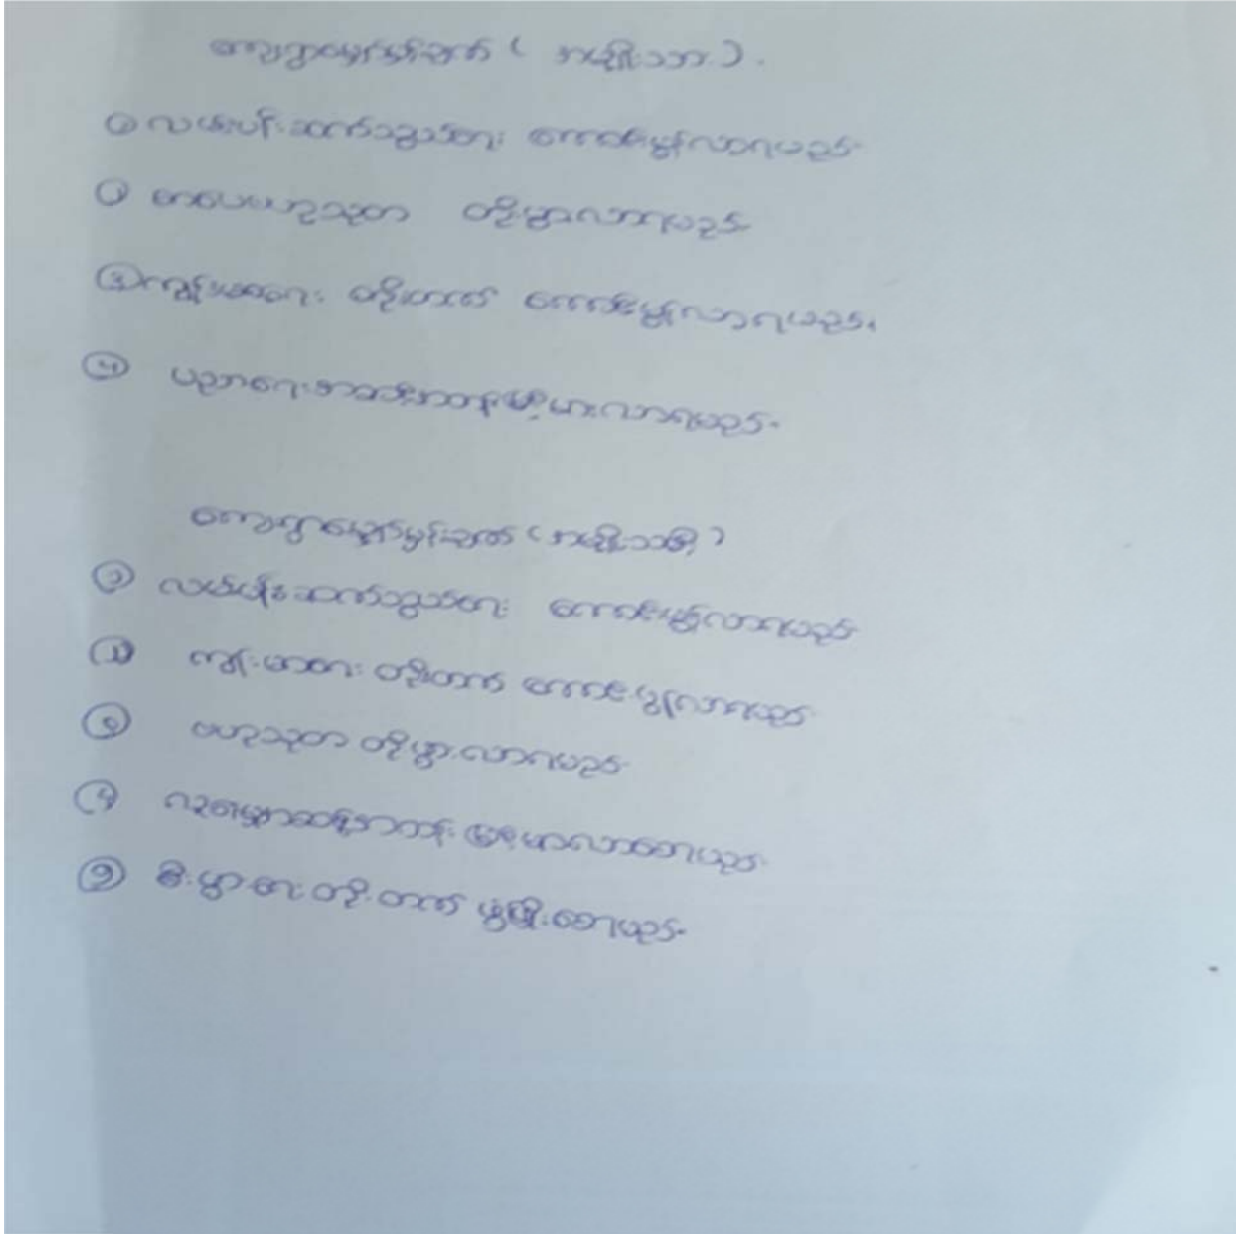 ကျေးရွာမျှော်မှန်းချက် ( အမျိုးသား )
၁ လမ်းပန်းဆက်သွယ်ရေး ကောင်းမွန်လာရမည်
၂ စာပေဗဟုသုတ တိုးပွားလာရမည်
၃ ကျန်းမာရေး တိုးတက် ကောင်းမွန်လာရမည်။
၄ ပညာရေးအဆင့်အတန်းမြင့်မားလာရမည်
ကျေးရွာမျှော်မှန်းချက် ( အမျိုးသမီး )
၁ လမ်းပန်းဆက်သွယ်ရေး ကောင်းမွန်လာရမည်
၂ ကျန်းမာရေး တိုးတက် ကောင်းမွန်လာရမည်
၃ ဗဟုသုတ တိုးပွားလာရမည်
၄ လူနေမှုအဆင့်အတန်း မြင့်မာလာစေရမည်
၅ စီးပွားရေး တိုးတက် ဖွံ့ဖြိုးစေရမည်